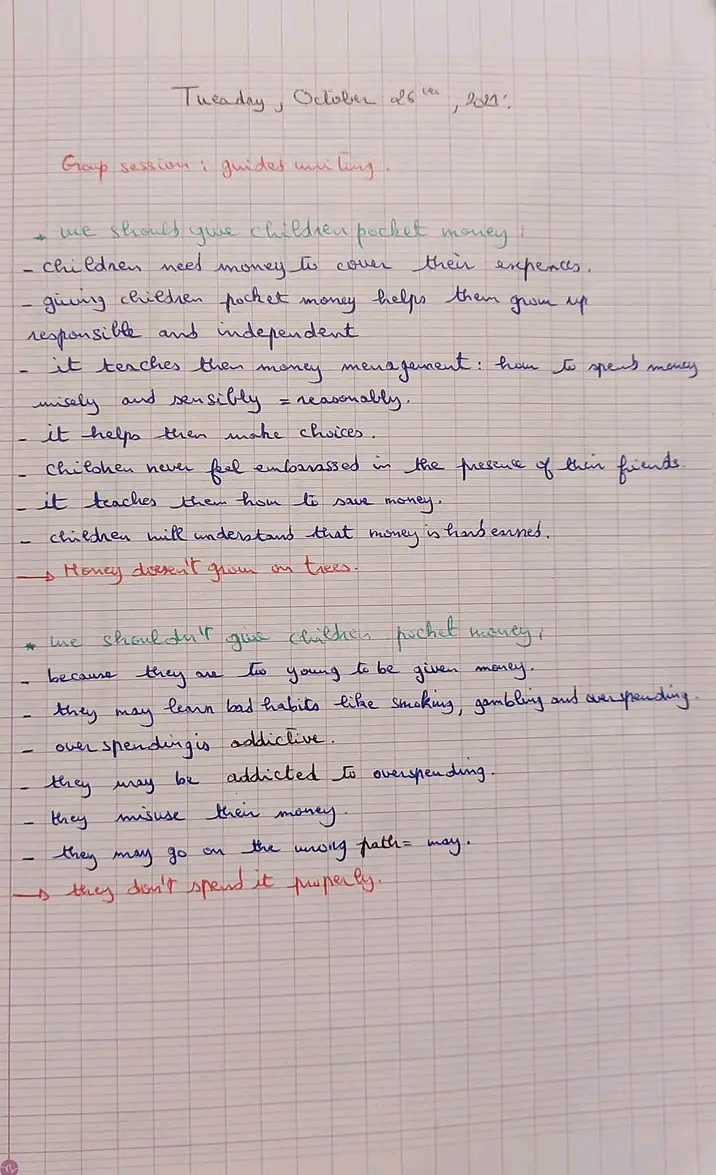 Tuesday, October 26th, 2021.
Group session: guided writing.
* we should give children pocket money:
- children need money to cover their expences.
- giving children pocket money helps them grow up
responsible and independent
- it teaches them money menagement: how to spend money
wisely and sensibly = reasonably.
- it helps them make choices.
- children never feel embarassed in the presence of their friends.
- it teaches them how to save money.
- children will understand that money is hard earned.
→ Money doesn't grow on trees.
* we shouldn't give children pocket money:
- because they are too young to be given money.
- they may learn bad habits like smoking, gambling and overspending.
- over spending is addictive.
- they may be addicted to overspending.
- they misuse their money.
- they may go on the wrong path = way.
→ they don't spend it properly.